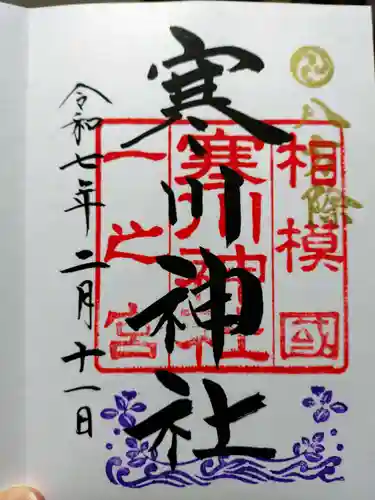 八方除
相模國
寒川神社
一之宮
寒川神社
令和七年二月十一日